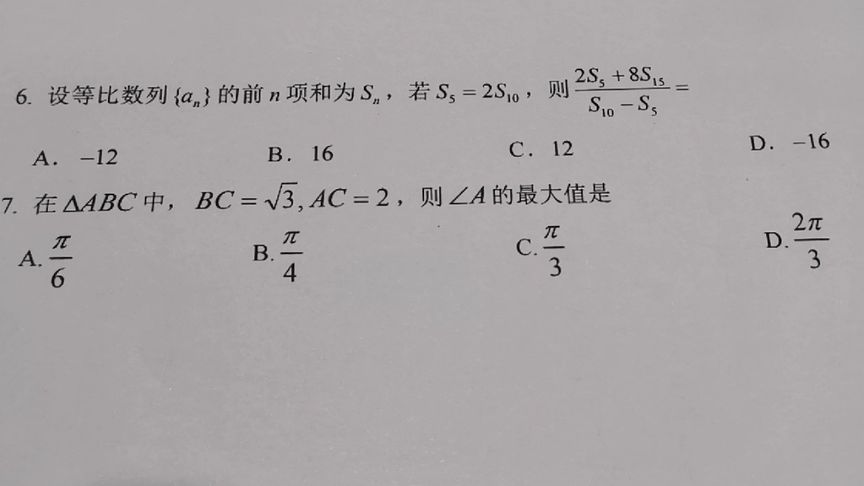 6. 设等比数列{aₙ}的前 n 项和为 Sₙ，若 S₅ = 2S₁₀，则 (2S₅ + 8S₁₅)/(S₁₀ − S₅) =
A. −12 B. 16 C. 12 D. −16
7. 在 ΔABC 中，BC = √3, AC = 2，则 ∠A 的最大值是
A. π/6 B. π/4 C. π/3 D. 2π/3